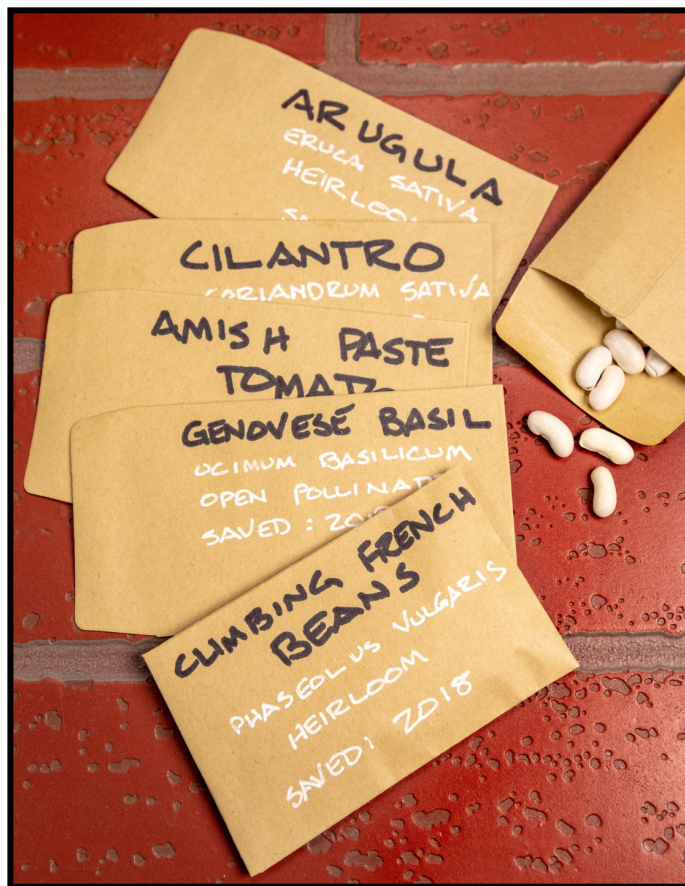 ARUGULA
ERUCA SATIVA
CILANTRO
CORIANDRUM SATIVA
AMISH PASTE
GENOVESE BASIL
OCIMUM BASILICUM
OPEN
SAVED:
CLIMBING FRENCH
BEANS
PHASEOLUS VULGARIS
HEIRLOOM
SAVED: 2018